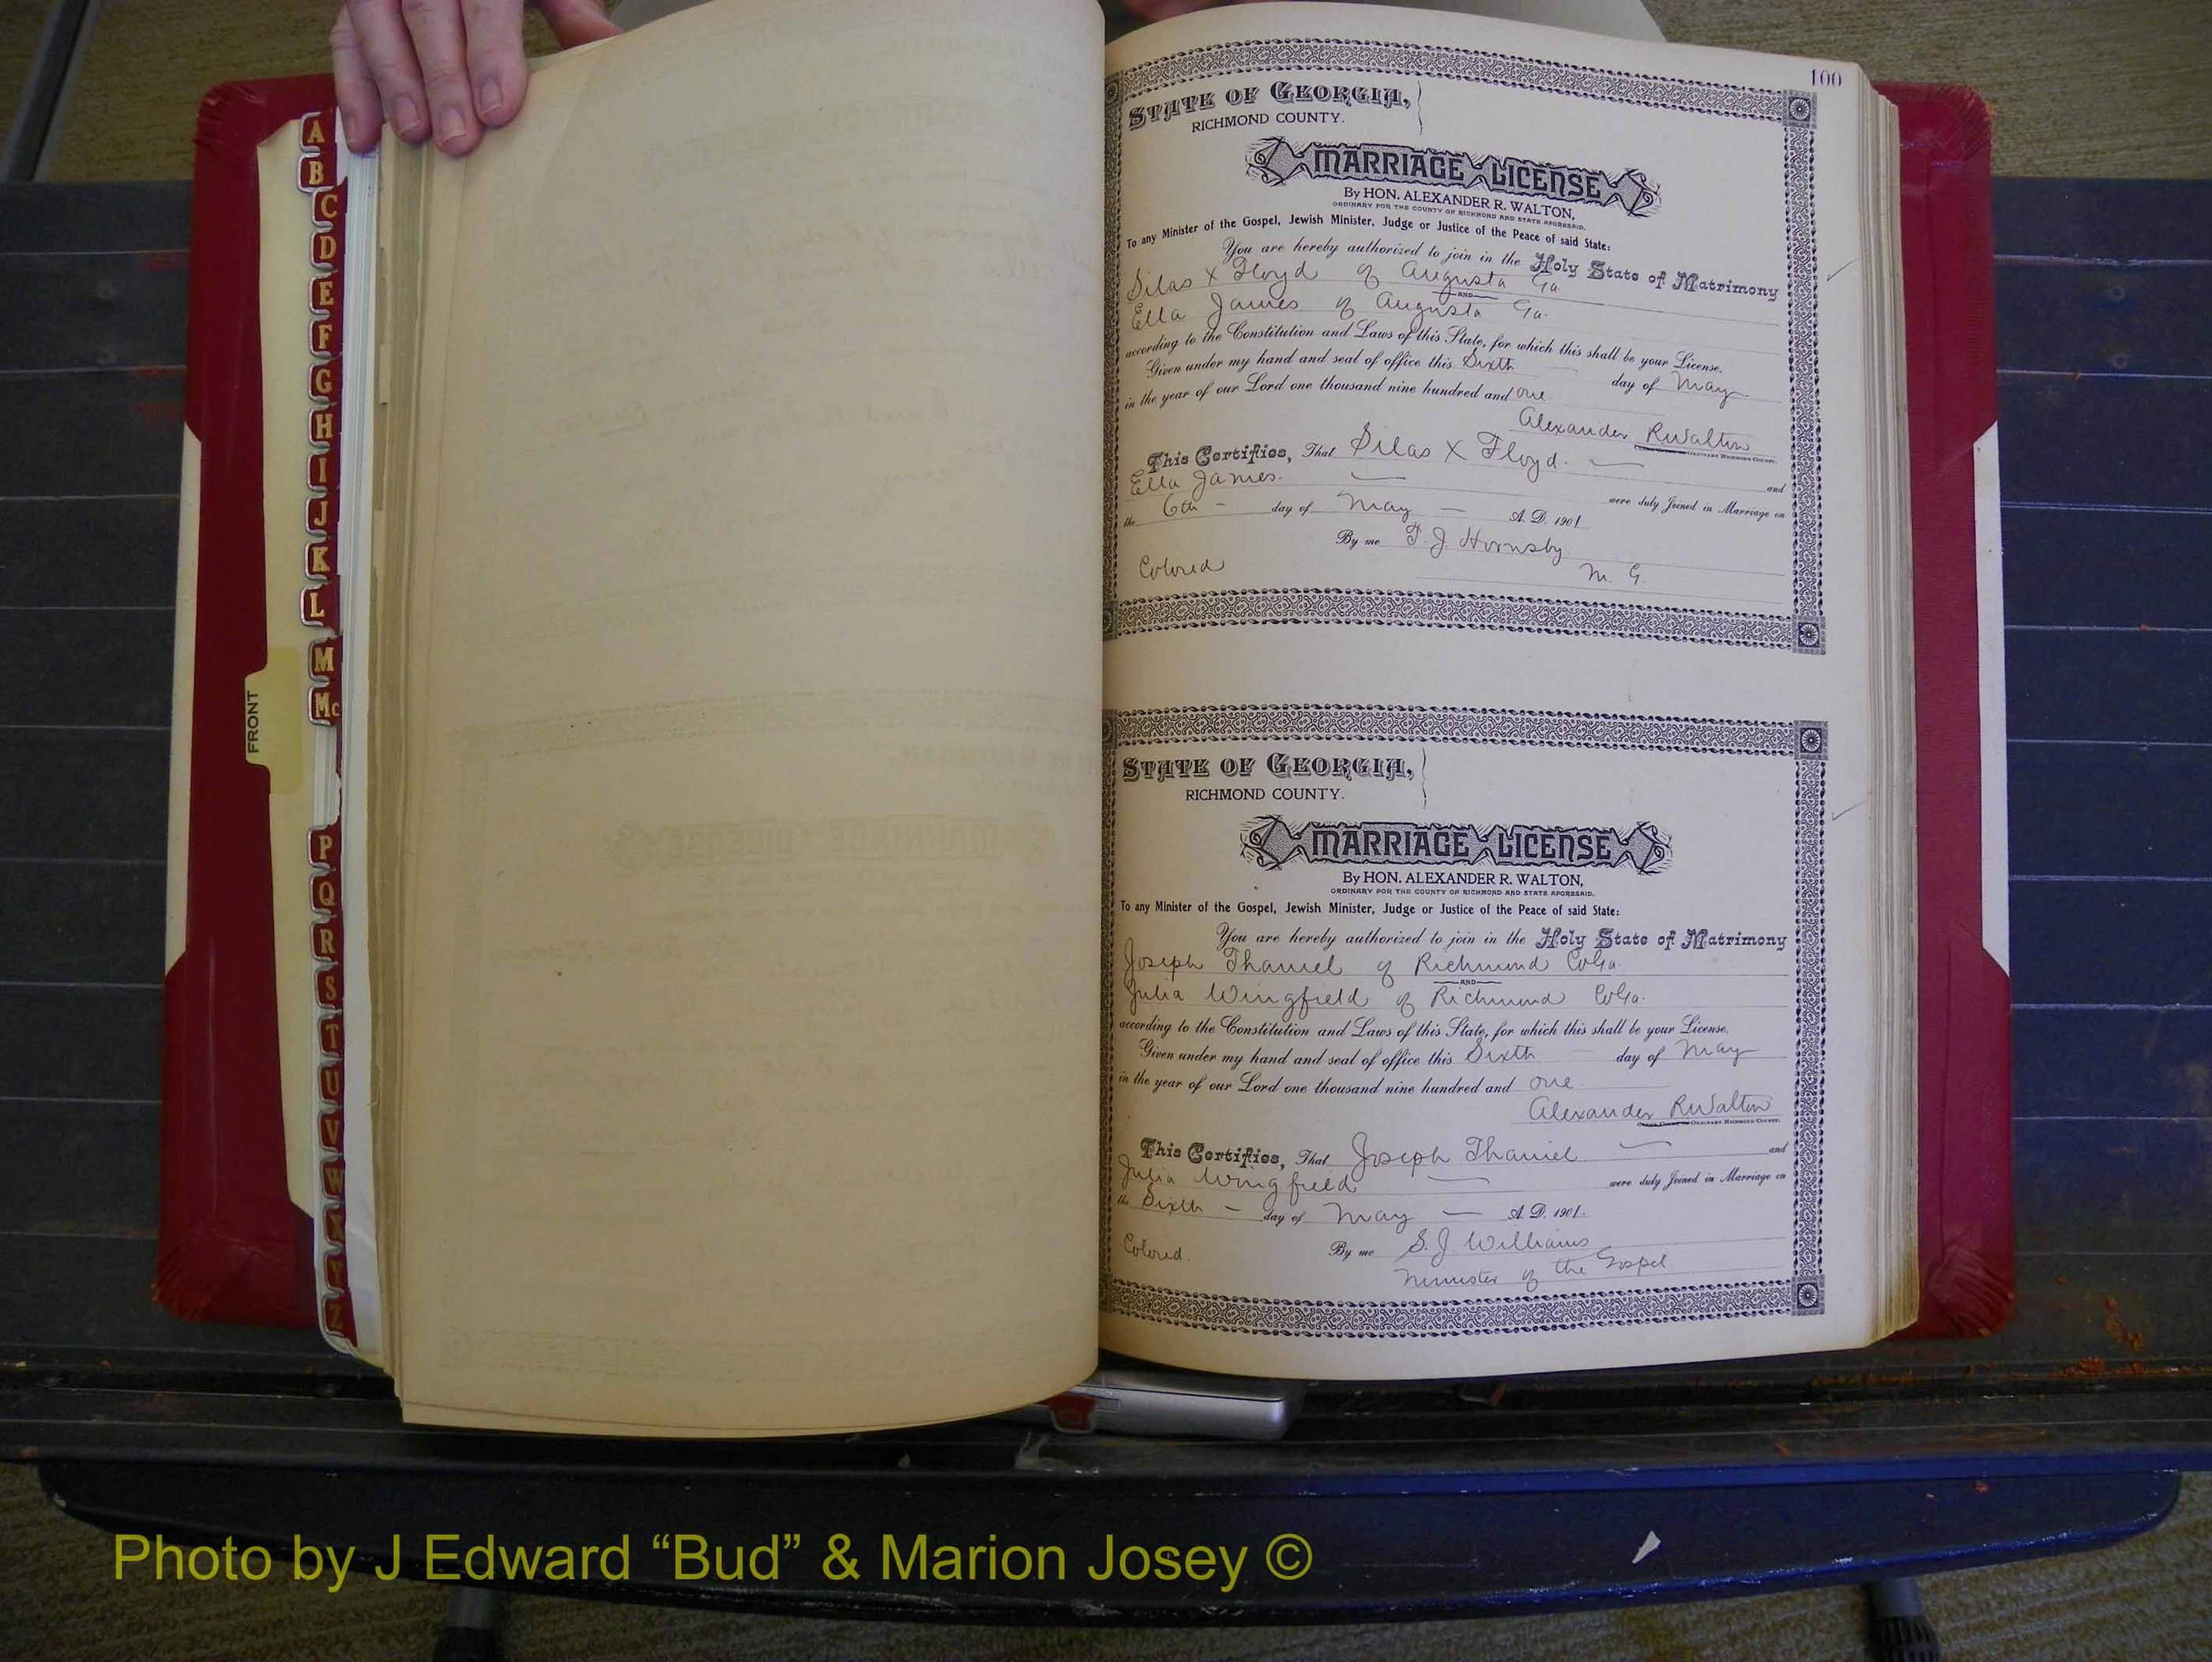 A
B
C
D
E
F
G
H
I
J
K
L
M
Mc
P
Q
R
S
T
U
V
W
X
Y
Z
FRONT
100
STATE OF GEORGIA,
RICHMOND COUNTY.
MARRIAGE LICENSE
By HON. ALEXANDER R. WALTON,
ORDINARY FOR THE COUNTY OF RICHMOND AND STATE AFORESAID.
To any Minister of the Gospel, Jewish Minister, Judge or Justice of the Peace of said State:
You are hereby authorized to join in the Holy State of Matrimony
Silas X Floyd of Augusta Ga
AND
Ella James of Augusta Ga.
according to the Constitution and Laws of this State, for which this shall be your License.
Given under my hand and seal of office this Sixth day of May
in the year of our Lord one thousand nine hundred and one
Alexander R Walton
ORDINARY RICHMOND COUNTY.
This Certifies, That Silas X Floyd. and
Ella James. were duly Joined in Marriage on
the 6th day of May A. D. 1901
By me T. J. Hornsby
Colored M. G.
STATE OF GEORGIA,
RICHMOND COUNTY.
MARRIAGE LICENSE
By HON. ALEXANDER R. WALTON,
ORDINARY FOR THE COUNTY OF RICHMOND AND STATE AFORESAID.
To any Minister of the Gospel, Jewish Minister, Judge or Justice of the Peace of said State:
You are hereby authorized to join in the Holy State of Matrimony
Joseph Thaniel of Richmond Co Ga.
AND
Julia Wingfield of Richmond Co Ga.
according to the Constitution and Laws of this State, for which this shall be your License.
Given under my hand and seal of office this Sixth day of May
in the year of our Lord one thousand nine hundred and one.
Alexander R Walton
ORDINARY RICHMOND COUNTY.
This Certifies, That Joseph Thaniel and
Julia Wingfield were duly Joined in Marriage on
the Sixth day of May A. D. 1901.
Colored. By me S. J. Williams
Minister of the Gospel.
Photo by J Edward “Bud” & Marion Josey ©